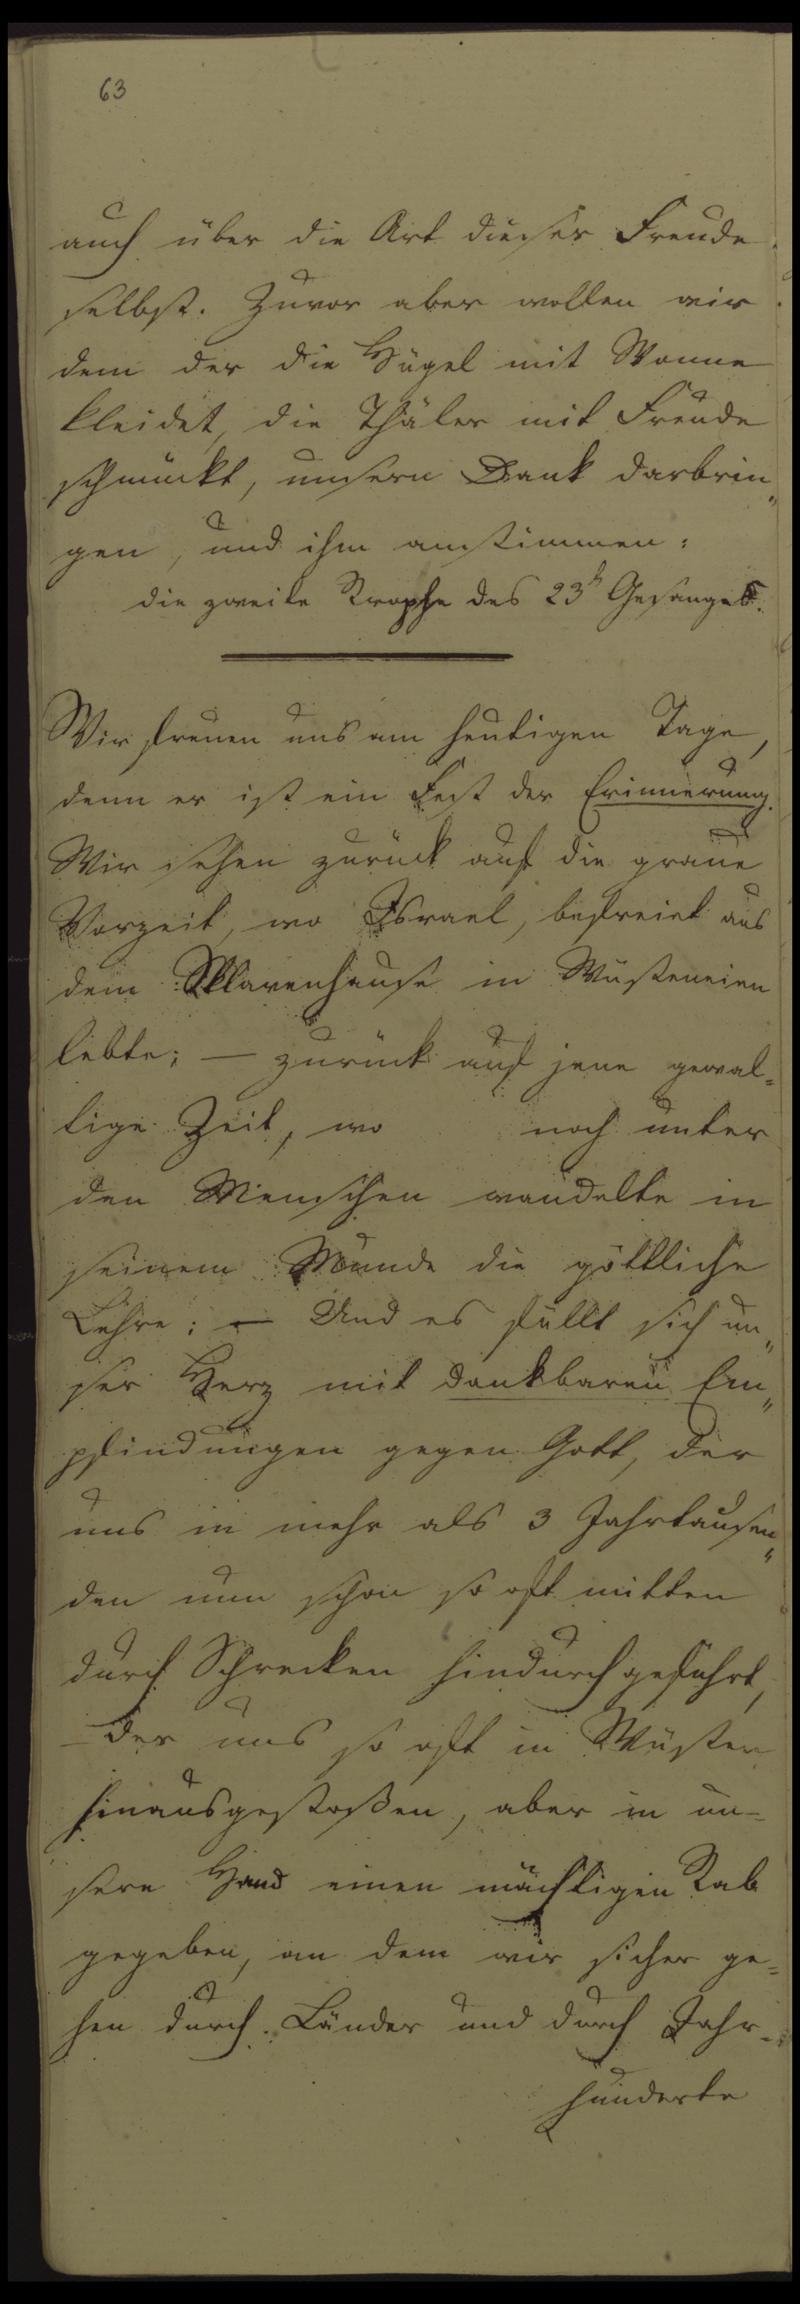 63
auch über die Art dieser Freude
selbst. Zuvor aber wollen wir
dem der die Hügel mit Wonne
kleidet, die Thäler mit Freude
schmückt, unsern Dank darbrin„
gen, und ihm anstimmen:
die zweite Strophe des 23t Gesanges.
Wir freuen uns am heutigen Tage,
denn er ist ein Fest der Erinnerung.
Wir sehen zurück auf die graue
Vorzeit, wo Israel, befreiet aus
dem Sklavenhause in Wüsteneien
lebte; — zurück auf jene gewal=
tige Zeit, wo noch unter
den Menschen wandelte in
seinem Munde die göttliche
Lehre; — Und es füllt sich un„
ser Herz mit dankbaren Em„
pfindungen gegen Gott, der
uns in mehr als 3 Jahrtausen„
den nun schon so oft mitten
durch Schrecken hindurchgeführt,
— der uns so oft in Wüsten
hinausgestoßen, aber in un-
sere Hand einen mächtigen Stab
gegeben, an dem wir sicher ge=
hen durch Länder und durch Jahr-
hunderte